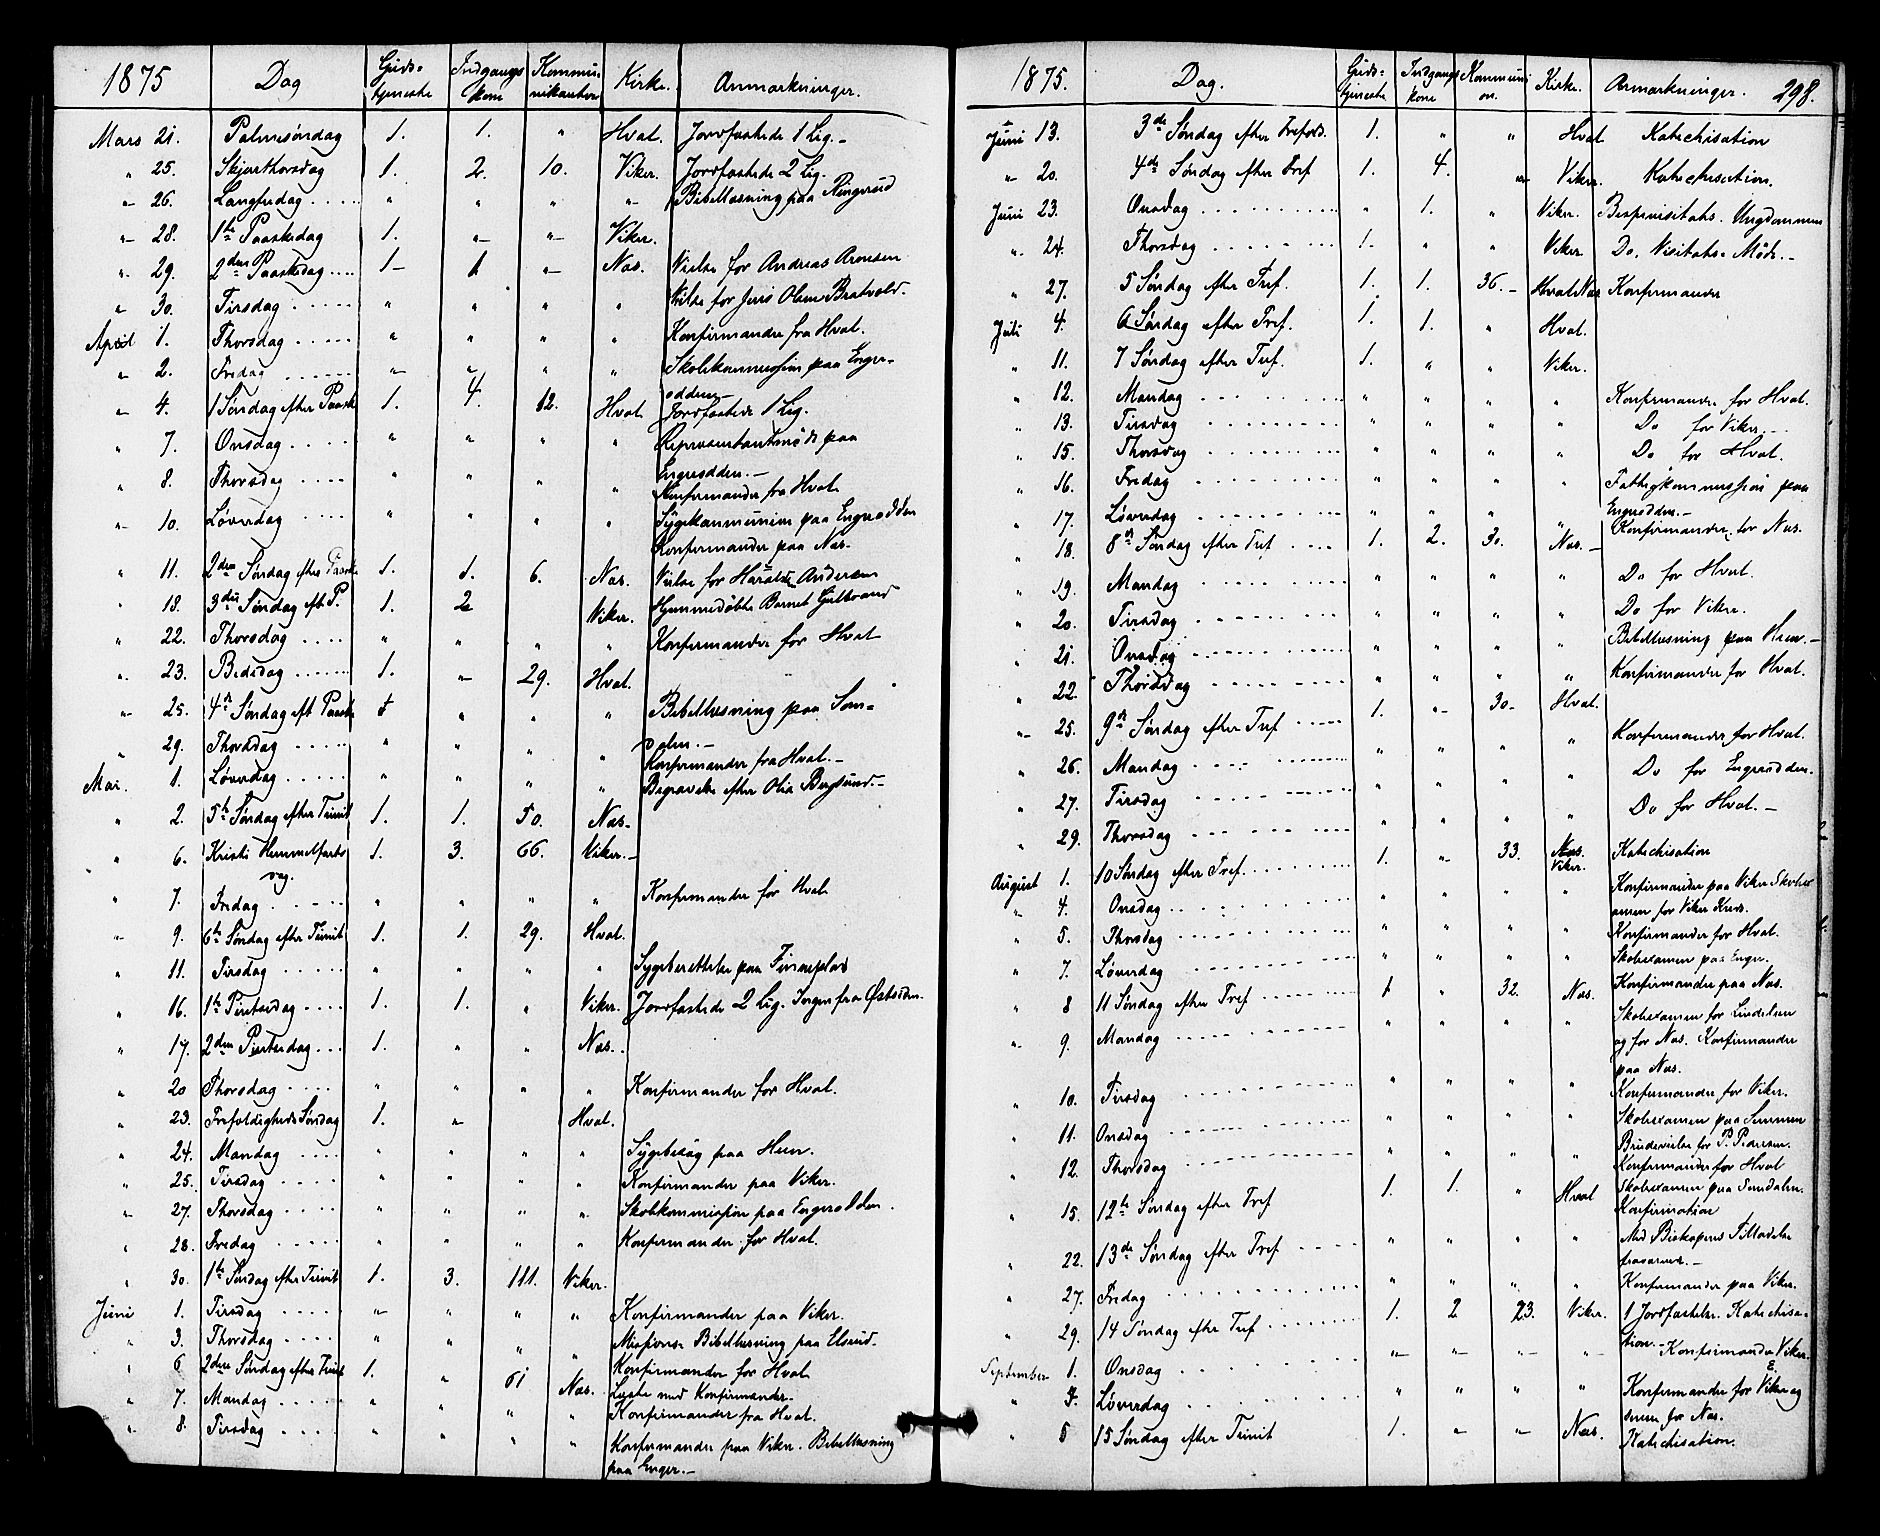 1875 Dag Guds= Indgangs Kommu= Kirke. Anmærkninger.
tjeneste kone nikanter
Mars 21. Palmesøndag 1. 1. " Hval. Jordfæstede 1 Lig.-
" 25. Skjærthorsdag 1. 2. 10. Viker. Jordfæstede 2 Lig.
" 26. Langfredag..... " " " " Bibellæsning paa Ringerud
" 28. 1te Paaskedag 1. " " Viker.
" 29. 2den Paaskedag.... 1 1 " Næs. Vielse for Andreas Aronsen
" 30. Tirsdag...... " " " " Vielse for Jens Olsen Bratvold.
April 1. Thorsdag...... " " " " Konfirmander fra Hval.
" 2. Fredag....... " " " " Skolekommission paa Enger-
odden-
" 4. 1 Søndag efter Paask 1. 4. 12. Hval. Jordfæstede 1 Lig.
" 7. Onsdag..... " " " " Repræsentantmøde paa
Engerodden.-
" 8. Thorsdag.... " " " " Konfirmander fra Hval
" 10. Løverdag..... " " " " Sygekommunion paa Engerodden
Konfirmander paa Næs.
" 11. 2den Søndag efter Paaske 1. 1. 6. Næs. Vielse for Harald Andersen
" 18. 3die Søndag eft P. 1. 2 Viker. Hjemmedøbte Barnet Gulbrand
" 22. Thorsdag.... " " " " Konfirmander for Hval
" 23. Bededag...... 1. " 29. Hval.
" 25. 4de Søndag eft Paaske 1 " " " Bibellæsning paa Søn-
dalen.-
" 29. Thorsdag..... " " " " Konfirmander fra Hval.-
Mai. 1. Løverdag...... " " " " Begravelse efter Olia Bergsund.-
" 2. 5te Søndag efter Trinit 1. 1. 50. Næs.
" 6. Kristi Himmelfarts 1. 3. 66. Viker.-
dag.
" 7. Fredag...... " " " " Konfirmander for Hval
" 9. 6te Søndag efter Trinit 1. 1. 29. Hval.
" 11. Tirsdag..... " " " " Sygeberettelse paa Finneplads
" 16. 1te Pintsedag.. 1. 1. " Viker. Jordfæstede 2 Lig. Ingen fra Østsiden.
" 17. 2den Pintsedag... 1. " " Næs..
" 20 Thorsdag..... " " " " Konfirmander for Hval.
" 23. Trefoldigheds Søndag 1. " Hval.
" 24. Mandag.... " " " " Sygebesøg paa Heen.
" 25. Tirsdag..... " " " " Konfirmander paa Viker.
" 27. Thorsdag.... " " " " Skolekommission paa Engerodden.
" 28. Fredag..... " " " " Konfirmander for Hval.
" 30. 1te Søndag efter Trinit 1. 3. 111. Viker.
Juni 1. Tirsdag..... " " " " Konfirmander paa Viker.
" 3. Thorsdag.... " " " " Missions= Bibellæsning paa Elsrud.
Konfirmander for Hval
" 6 2den Søndag efter Trinit 1. " 61 Næs. Læste med Konfirmander.
" 7. Mandag..... " " " " Konfirmander fra Hval.
" 8. Tirsdag..... " " " " Konfirmander paa Viker. Bibellæsning
paa Enger.-
1875. Dag. Guds= Indgangs Kommuni Kirke. Anmærkninger. 298.
tjeneste kone on.
Juni 13. 3de Søndag efter Trefold. 1. " " Hval Katechisation
" 20. 4de Søndag efter Tref 1. 4. " Viker. Katechisation.
Juni 23. Onsdag.......... " 1. " Viker. Bispevisitats. Ungdommen
" 24. Thorsdag....... 1. " " Viker. Do. Visitats= Møde.-
" 27. 5 Søndag efter Tref. 1. 1. 36.- Hval Næs Konfirmander
Juli 4. 6 Søndag efter Tref. 1. 1. " Hval.
" 11. 7 Søndag efter Tref. 1. " " Viker.
" 12. Mandag......... " " " " Konfirmander for Hval.
" 13. Tirsdag......... " " " " Do for Viker.-
" 15. Thorsdag........ " " " " Do for Hval.
" 16. Fredag......... " " " " Fattigkommission paa
Engerodden.-
" 17. Løverdag........ " " " " Konfirmander for Næs.
" 18. 8de Søndag efter Tref.... 1. 2. 30. Næs.-
" 19. Mandag " " " " Do for Hval.
" 20. Tirsdag........ " " " " Do for Viker.
" 21. Onsdag........ " " " " Bibellæsning paa Heen.-
" 22. Thorsdag....... " " " " Konfirmander for Hval.
" 25. 9de Søndag efter Tref.... 1. " 30- Hval.
" 26. Mandag......... " " " " Konfirmander for Hval.
" 27. Tirsdag........ " " " " Do for Engerodden.
" 29. Thorsdag....... " " " " Do for Hval.-
August 1. 10 Søndag efter Tref....... 1. " 33. Næs. Katechisation
Viker.
" 4. Onsdag......... " " " " Konfirmander paa Viker Skolex
amen for Viker Kreds.
" 5. Thorsdag........ " " " " Konfirmander for Hval.
" 7. Løverdag....... " " " " Skolexamen paa Enger.
" 8 11 Søndag efter Tref...... 1 " 32. Næs. Konfirmander paa Næs.
" 9. Mandag......... " " " " Skolexamen for Lindelien
og for Næs. Konfirmander
paa Næs.
" 10. Tirsdag....... " " " " Konfirmander for Viker.
" 11. Onsdag........ " " " " Skolexamen paa Semmen
Brudevielse for P. Pedersen.
" 12. Thorsdag....... " " " " Konfirmander for Hval
Skolexamen paa Søndalen.
" 15. 12te Søndag efter Tref 1. 1. " Hval Konfirmation
" 22. 13de Søndag efter Tref..... " " " " Med Biskopens Tilladelse
fraværende.-
" 27. Fredag......... " " " " Konfirmander paa Viker.
" 29. 14 Søndag efter Tref....... 1. 2 23. Viker. 1 Jordfæstelse. Katechisa-
tion.-
September 1. Onsdag........ " " " " Konfirmander Viker.
" 4. Løverdag....... " " " " Konfirmander for Viker og
for Næs.
" 5 15 Søndag efter Trinit 1. " " Næs. Katechisation.